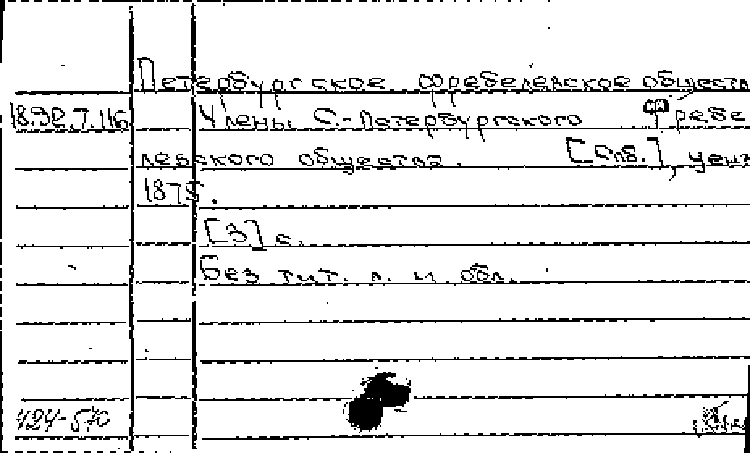 Петербургское фребелевское обществ
18.92.7.116 Члены С.-Петербургского Фребе
левского общества. [Спб.], ценз
1875.
[3] с.
Без тит. л. и обл.
424-570